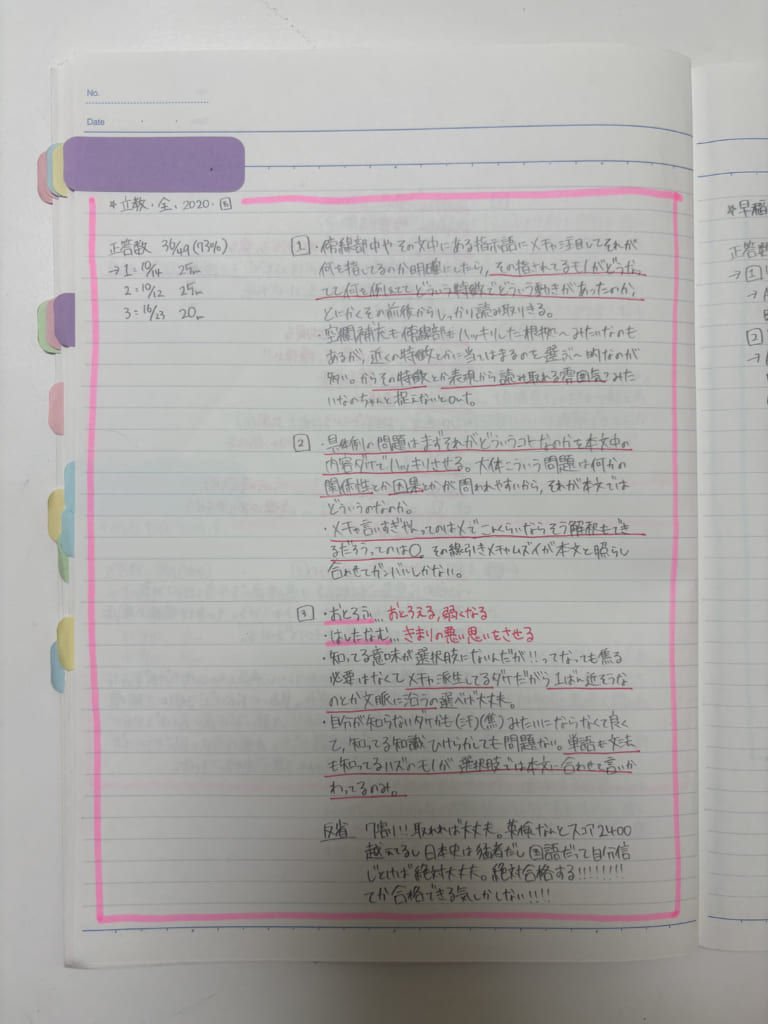 No.
Date
*立教・全・2020・国
正答数 36/49 (73%)
→1=10/14 25m
2=10/12 25m
3=16/23 20m
1 ・傍線部中やその文中にある指示語にメチャ注目してそれが
何を指してるのか明確にしたら、その指されてるモノがどうか、
てて何を伝えててどういう特徴でどういう動きがあったのか、
とにかくその前後からしっかり読み取りきる。
・空欄補充も傍線部もハッキリした根拠〜みたいなのも
あるが、近くの特徴とかに当てはまるのを選ぶ〜的なのが
多い。からその特徴とか表現から読み取れる雰囲気?みた
いなのちゃんと捉えないとout。
2 ・具体例の問題はまずそれがどういうコトなのかを本文中の
内容ダケでハッキリさせる。大体こういう問題は何かの
関係性とか因果とかが問われやすいから、それが本文では
どういうのなのか。
・メチャ言いすぎやんってのは×でこんくらいならそう解釈もでき
るだろうってのは〇。その線引きメチャムズイが本文と照らし
合わせてガンバルしかない。
3 ・おとろふ…おとろえる,弱くなる
・はしたなむ…きまりの悪い思いをさせる
・知ってる意味が選択肢にないんだが!!ってなっても焦る
必要はなくてメチャ派生してるダケだから1ばん近そうな
のとか文脈に沿うの選べば大丈夫。
・自分が知らないダケかも(汗)(焦)みたいにならなくて良く
て、知ってる知識ひけらかしても問題ない。単語も文法
も知ってるハズのモノが選択肢では本文に合わせて言いか
わってるのみ。
反省 7割!!取れれば大丈夫。英検なんとスコア2400
越えてるし日本史は猛者だし国語だって自分信
じとけば絶対大丈夫。絶対合格する!!!!!!!!
てか合格できる気しかしない!!!!
*早稲
正答数
→1
2